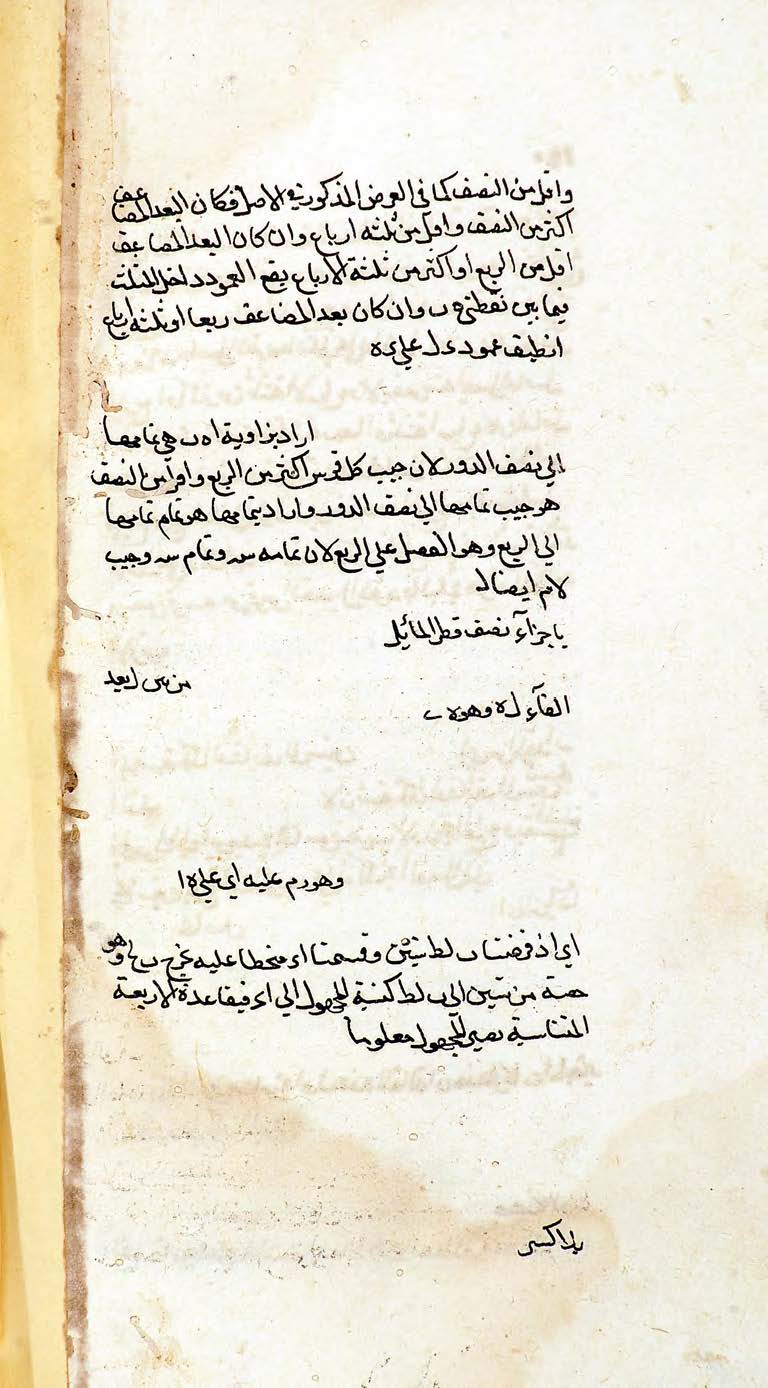 واقل من النصف كما في العرض المذكور في الاصل فكان البعد المضاعف
اكثر من النصف واقل من ثلثة ارباع وان كان البعد المضاعف
اقل من الربع او اكثر من ثلثة الارباع يقع العمود داخل المثلث
فيما بين نقطتي ه ب وان كان بعد المضاعف ربعا او ثلثة ارباع
انطبق عمود د ل علي ء ه
اراد بزاوية ا ه ب هي تمامها
الي نصف الدور لان جيب كل قوس اكثر من الربع واقل من النصف
هو جيب تمامها الي نصف الدور واراد بتمامها هو تمام تمامها
الي الربع وهو الفضل علي الربع لان تمامه سه وتمام سه وجيب
لام ايضا ل
باجزآء نصف قطر المائل
من س ا بعد
الفآء ل ه وهو ه ب
وهو د م عليه اي علي ه ا
اي اذ فرضنا ب لط ستين وقسمنا ا ء منحطا عليه يخرج وهو
حصة من ستين الي ب لط كنسبة المجهول الي ا ء فبقاعدة الاربعة
المتناسبة يصير المجهول معلوما
بلا كسر